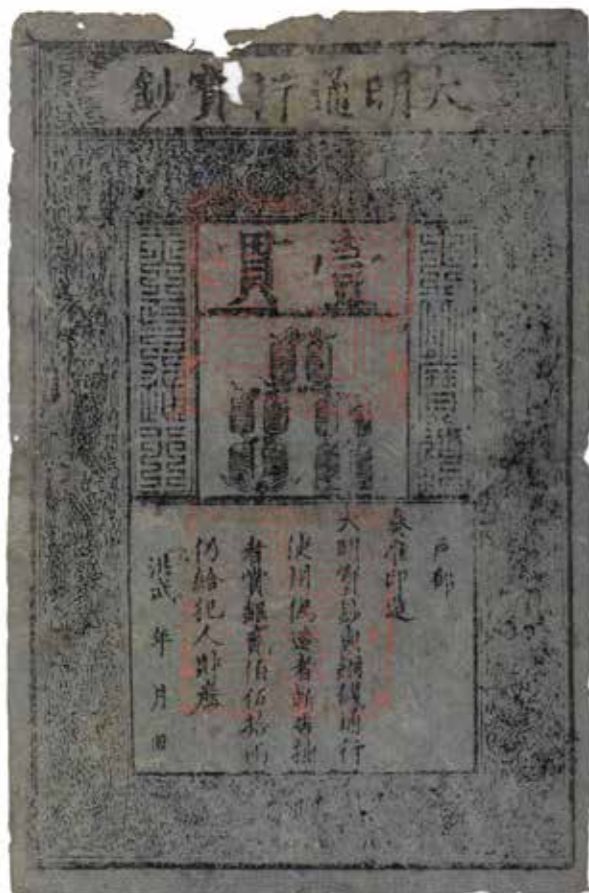 大明通行寶鈔
壹貫
戶部
奏准印造
大明寶鈔與銅錢通行
使用偽造者斬告捕
者賞銀貳佰伍拾兩
仍給犯人財産
洪武 年 月 日